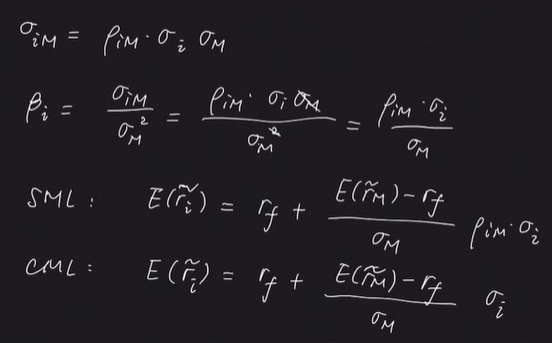 σ_iM = ρ_iM · σ_i σ_M
β_i = σ_iM / σ_M² = ρ_iM · σ_i σ_M / σ_M² = ρ_iM · σ_i / σ_M
SML : E(r̃_i) = r_f + (E(r̃_M) - r_f) / σ_M ρ_iM · σ_i
CML : E(r̃_i) = r_f + (E(r̃_M) - r_f) / σ_M σ_i